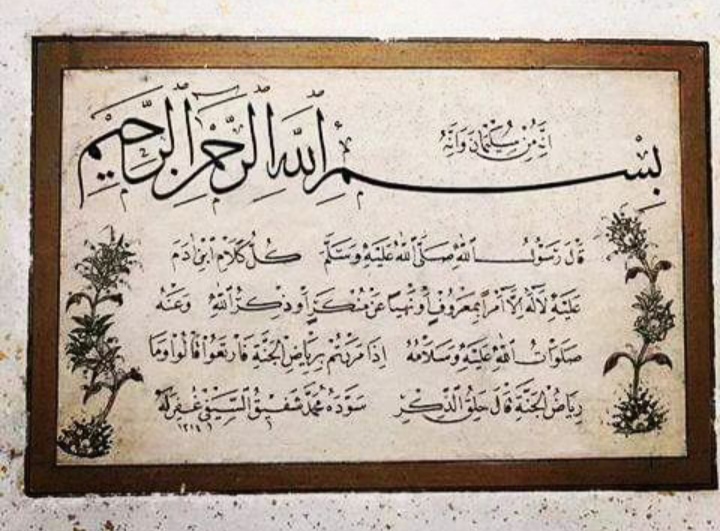 إنه من سليمان وإنه
بسم الله الرحمن الرحيم
قال رسول الله صلى الله عليه وسلم كل كلام ابن آدم
عليه لا له إلا أمرا بمعروف أو نهيا عن منكر أو ذكر الله وعنه
صلوات الله عليه وسلامه إذا مررتم برياض الجنة فارتعوا قالوا وما
رياض الجنة قال حلق الذكر سوده محمد شفيق السيفي غفر له